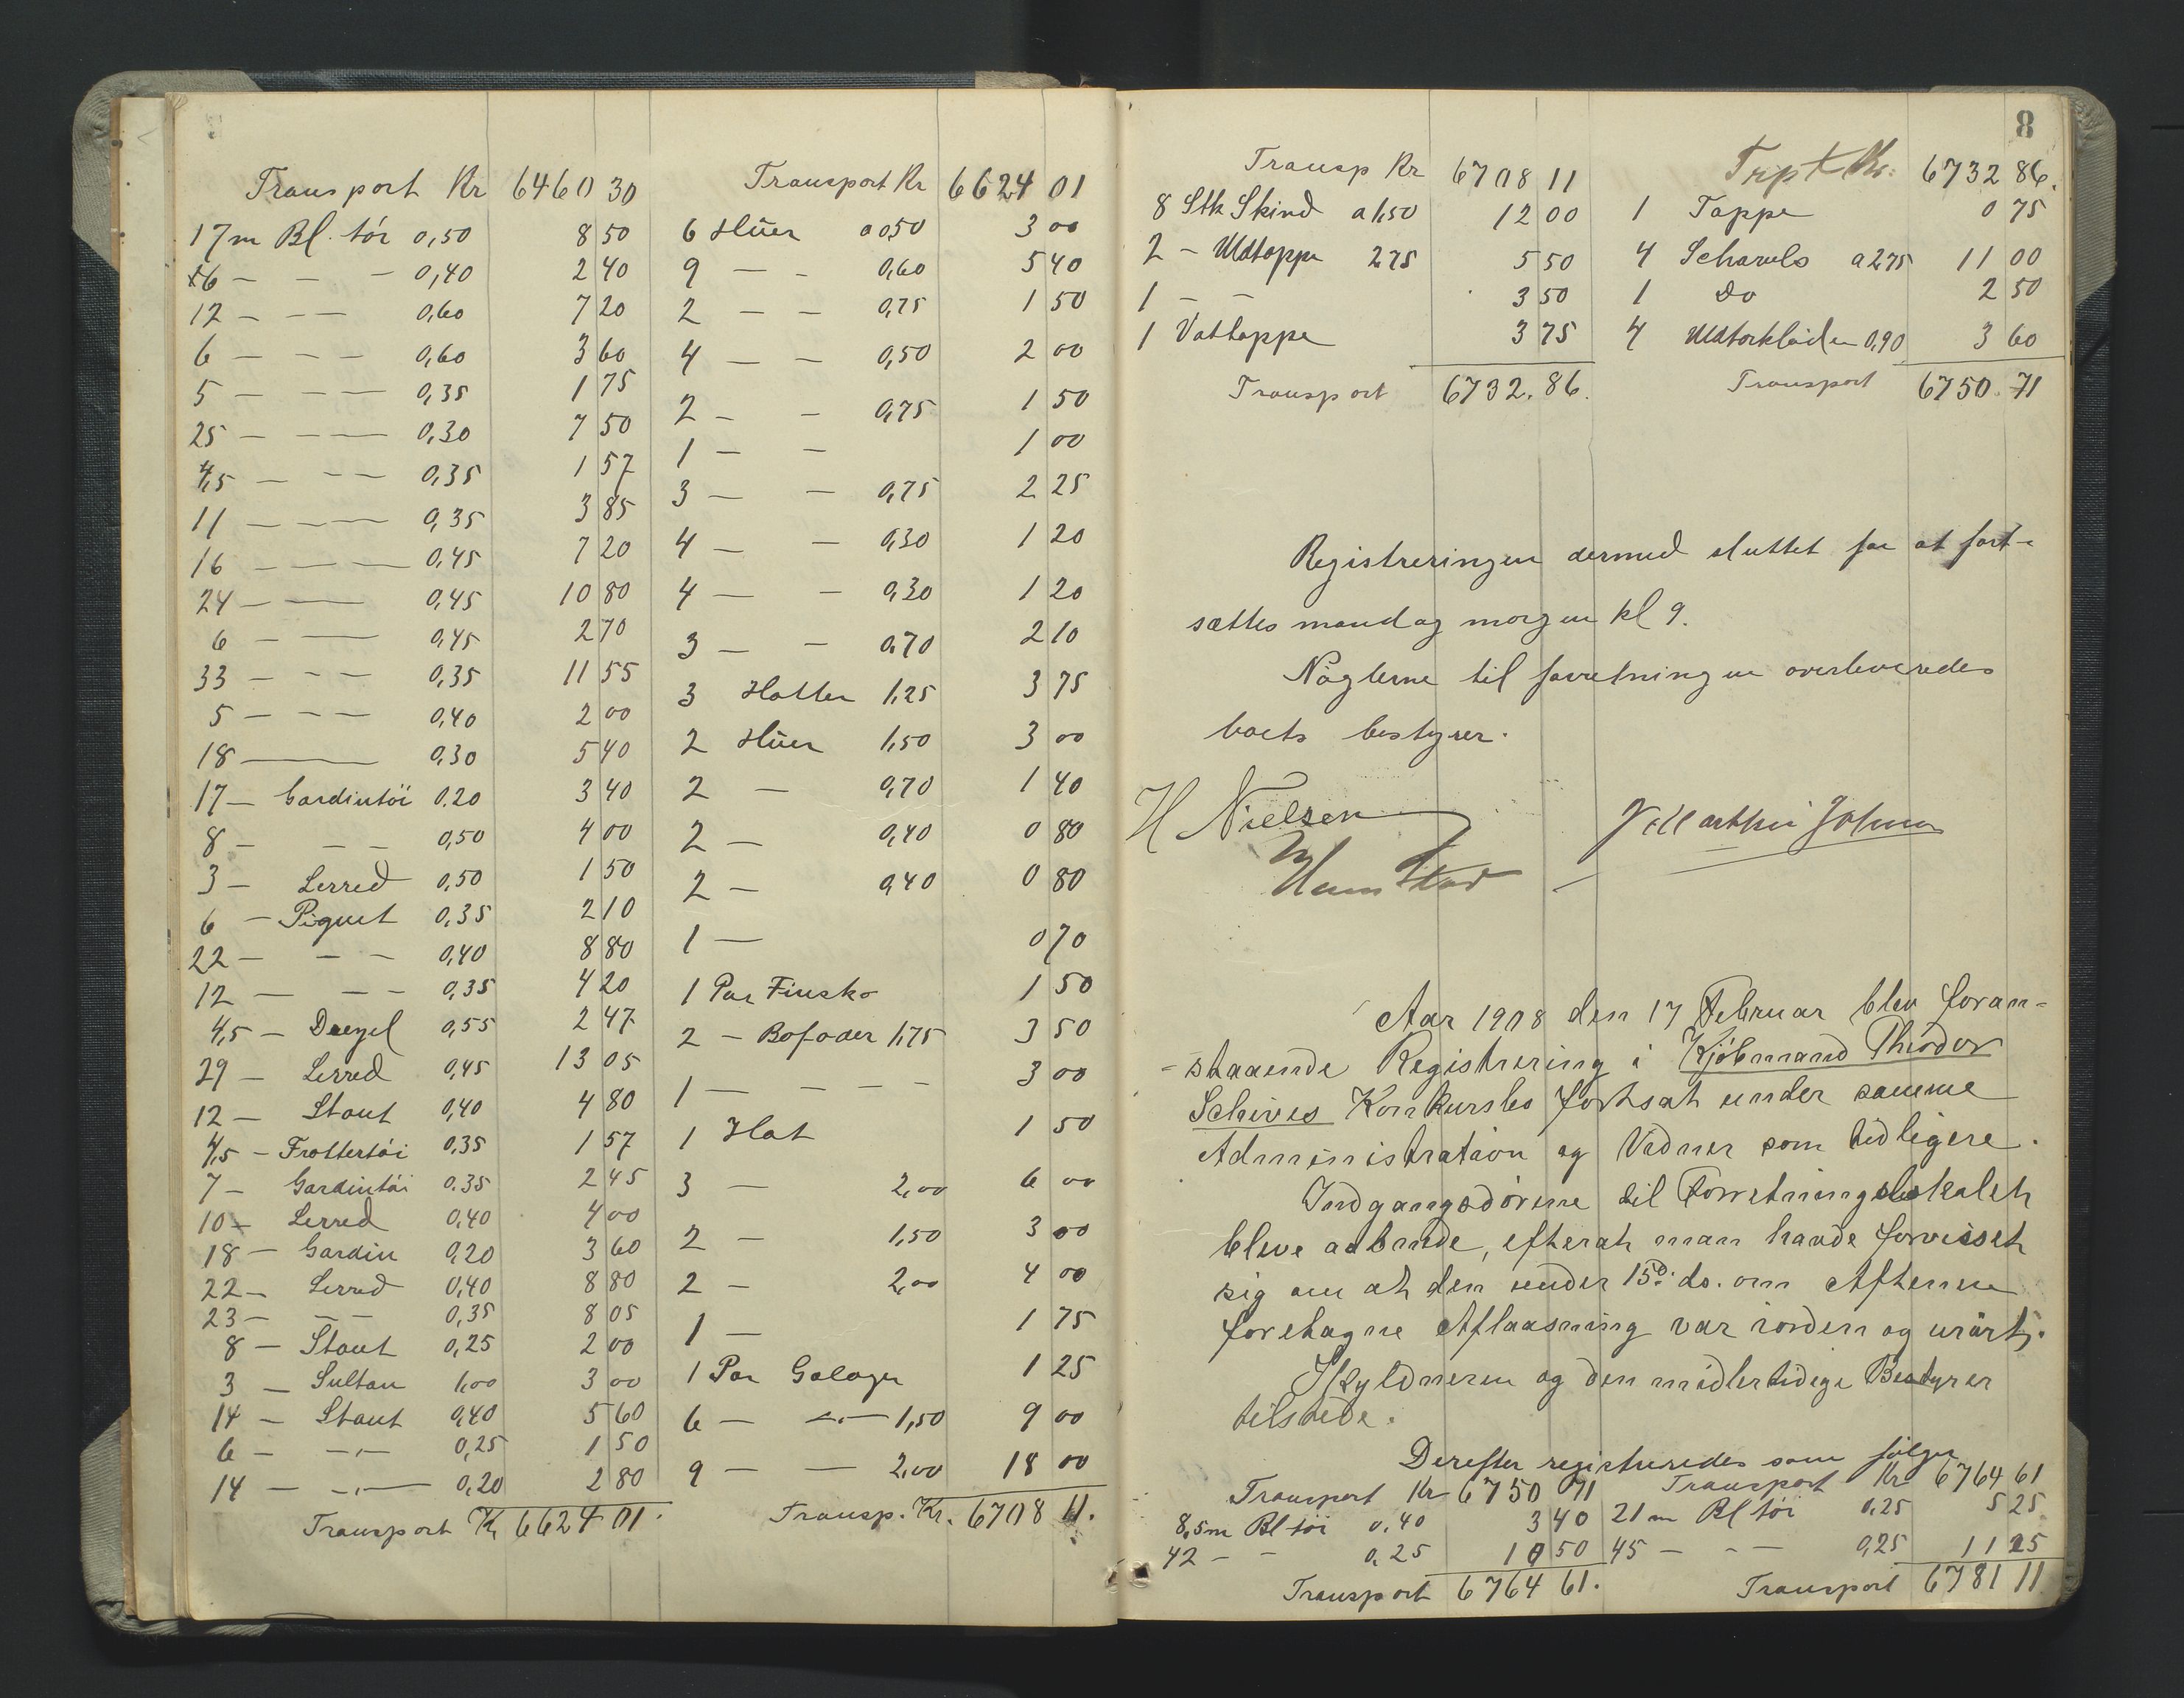 Transport Kr 6460 30
17 m Bl. tøi 0,50 8 50
6 — — — 0,40 2 40
12 — — — 0,60 7 20
6 — — — 0,60 3 60
5 — — — 0,35 1 75
25 — — — 0,30 7 50
4,5 — — — 0,35 1 57
11 — — — 0,35 3 85
16 — — — 0,45 7 20
24 — — 0,45 10 80
6 — — 0,45 2 70
33 — — — 0,35 11 55
5 — — — 0,40 2 00
18 — 0,30 5 40
17 — Gardintöi 0.20 3 40
8 — — — 0,50 4 00
3 — Lerred 0,50 1 50
6 — Piquet 0,35 2 10
22 — — — 0,40 8 80
12 — — — 0,35 4 20
4,5 — Dregel 0,55 2 47
29 — Lerred 0,45 13 05
12 — Stout 0,40 4 80
4,5 — Frottertøi 0.35 1 57
7 — Gardintøi 0.35 2 45
10 — Lerred 0,40 4 00
18 — Gardin 0,20 3 60
22 — Lerred 0,40 8 80
23 — — — 0,35 8 05
8 — Stout 0,25 2 00
3 — Sultan 1,00 3 00
14 — Stout 0,40 5 60
6 — —„— 0,25 1 50
14 — —„— 0,20 2 80
Transport Kr 6624 01.
Transport Kr 6624 01
6 Hüer a 0,50 3 00
9 — - 0,60 5 40
2 — — 0,75 1 50
4 — — 0,50 2 00
2 — — 0,75 1 50
1 — — 1 00
3 — — 0,75 2 25
4 — — 0,30 1 20
4 — — 0,30 1 20
3 — — 0,70 2 10
3 Hatter 1,25 3 75
2 Hüer 1,50 3 00
2 — 0,70 1 40
2 — 0,40 0 80
2 — 0,40 0 80
1 — 0 70
1 Par Finsko 1 50
2 — Bofoder 1,75 3 50
1 — — — — 3 00
1 Hat 1 50
3 — 2,00 6 00
2 — 1,50 3 00
2 — 2,00 4 00
1 — 1 75
1 Par Galoger 1 25
6 — —„— 1,50 9 00
9 — — 2,00 18 00
Transp. Kr. 6708 11.
8
Transp Kr 6708 11
8 Stk Skind a 1,50 12 00
2 — Uldtæppe 2,75 5 50
1 — — 3 50
1 Vattæppe 3 75
Transport 6732.86.
Trpt Kr. 6732 86.
1 Tæppe 0 75
4 Schawls a 2,75 11 00
1 Do 2 50
4 Uldtørklæder 0,90 3 60
Transport 6750.71
Registreringen dermed sluttet for at fort-
sættes mandag morgen kl 9.
Nøglerne til forretningen overleveredes
boets bestyrer.
H Nielsen
Aar 1908 den 17 Februar blev foran-
-staaende Registrering i Kjøbmand Theodor
Schives Konkursbo fortsat under samme
Administration og Vidner som tidligere.
Indgangsdørene til Forretningslokalet
bleve aabnede, efterat man havde forvisset
sig om at den under 15d. ds. om Aftenen
foretagne Aflaasning var iorden og urørt.
Skyldneren og den midlertidige Bestyrer
tilstede.
Derefter registreredes som følger
Transport Kr 6750 71
8,5 m Bl tøi 0.40 3 40
42 — — 0,25 10 50
Transport 6764 61.
Transport Kr 6764 61
21 m Bl tøi 0,25 5 25
45 — — — 0,25 11 25
Transport 6781 11